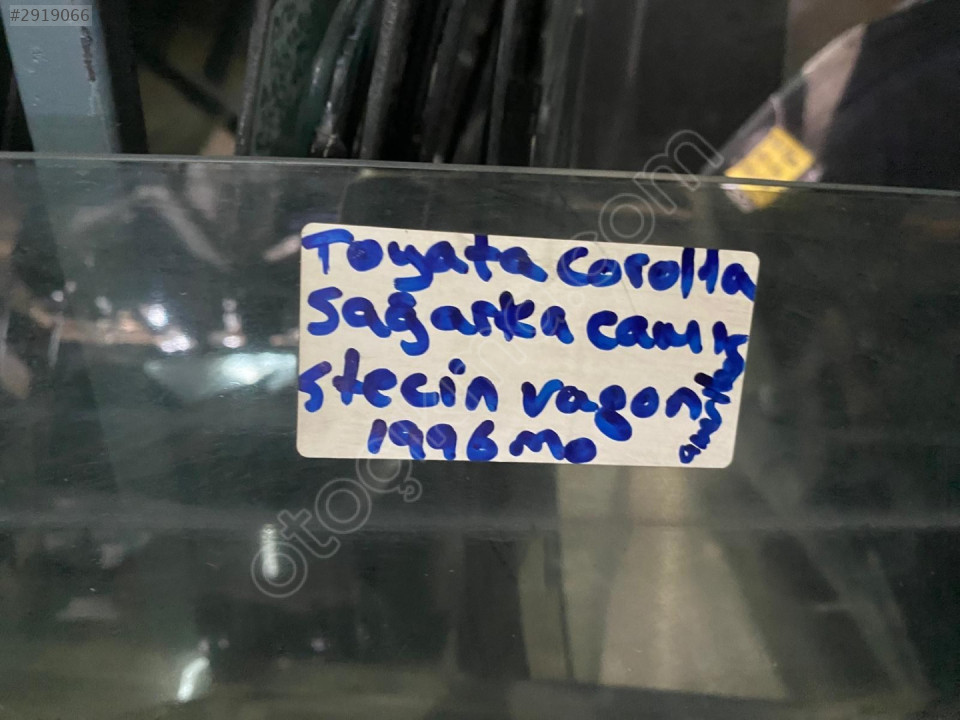 #2919066
Toyata Corolla
sağarka camı
stecin vagon
1996 mo
otoçıkma.com